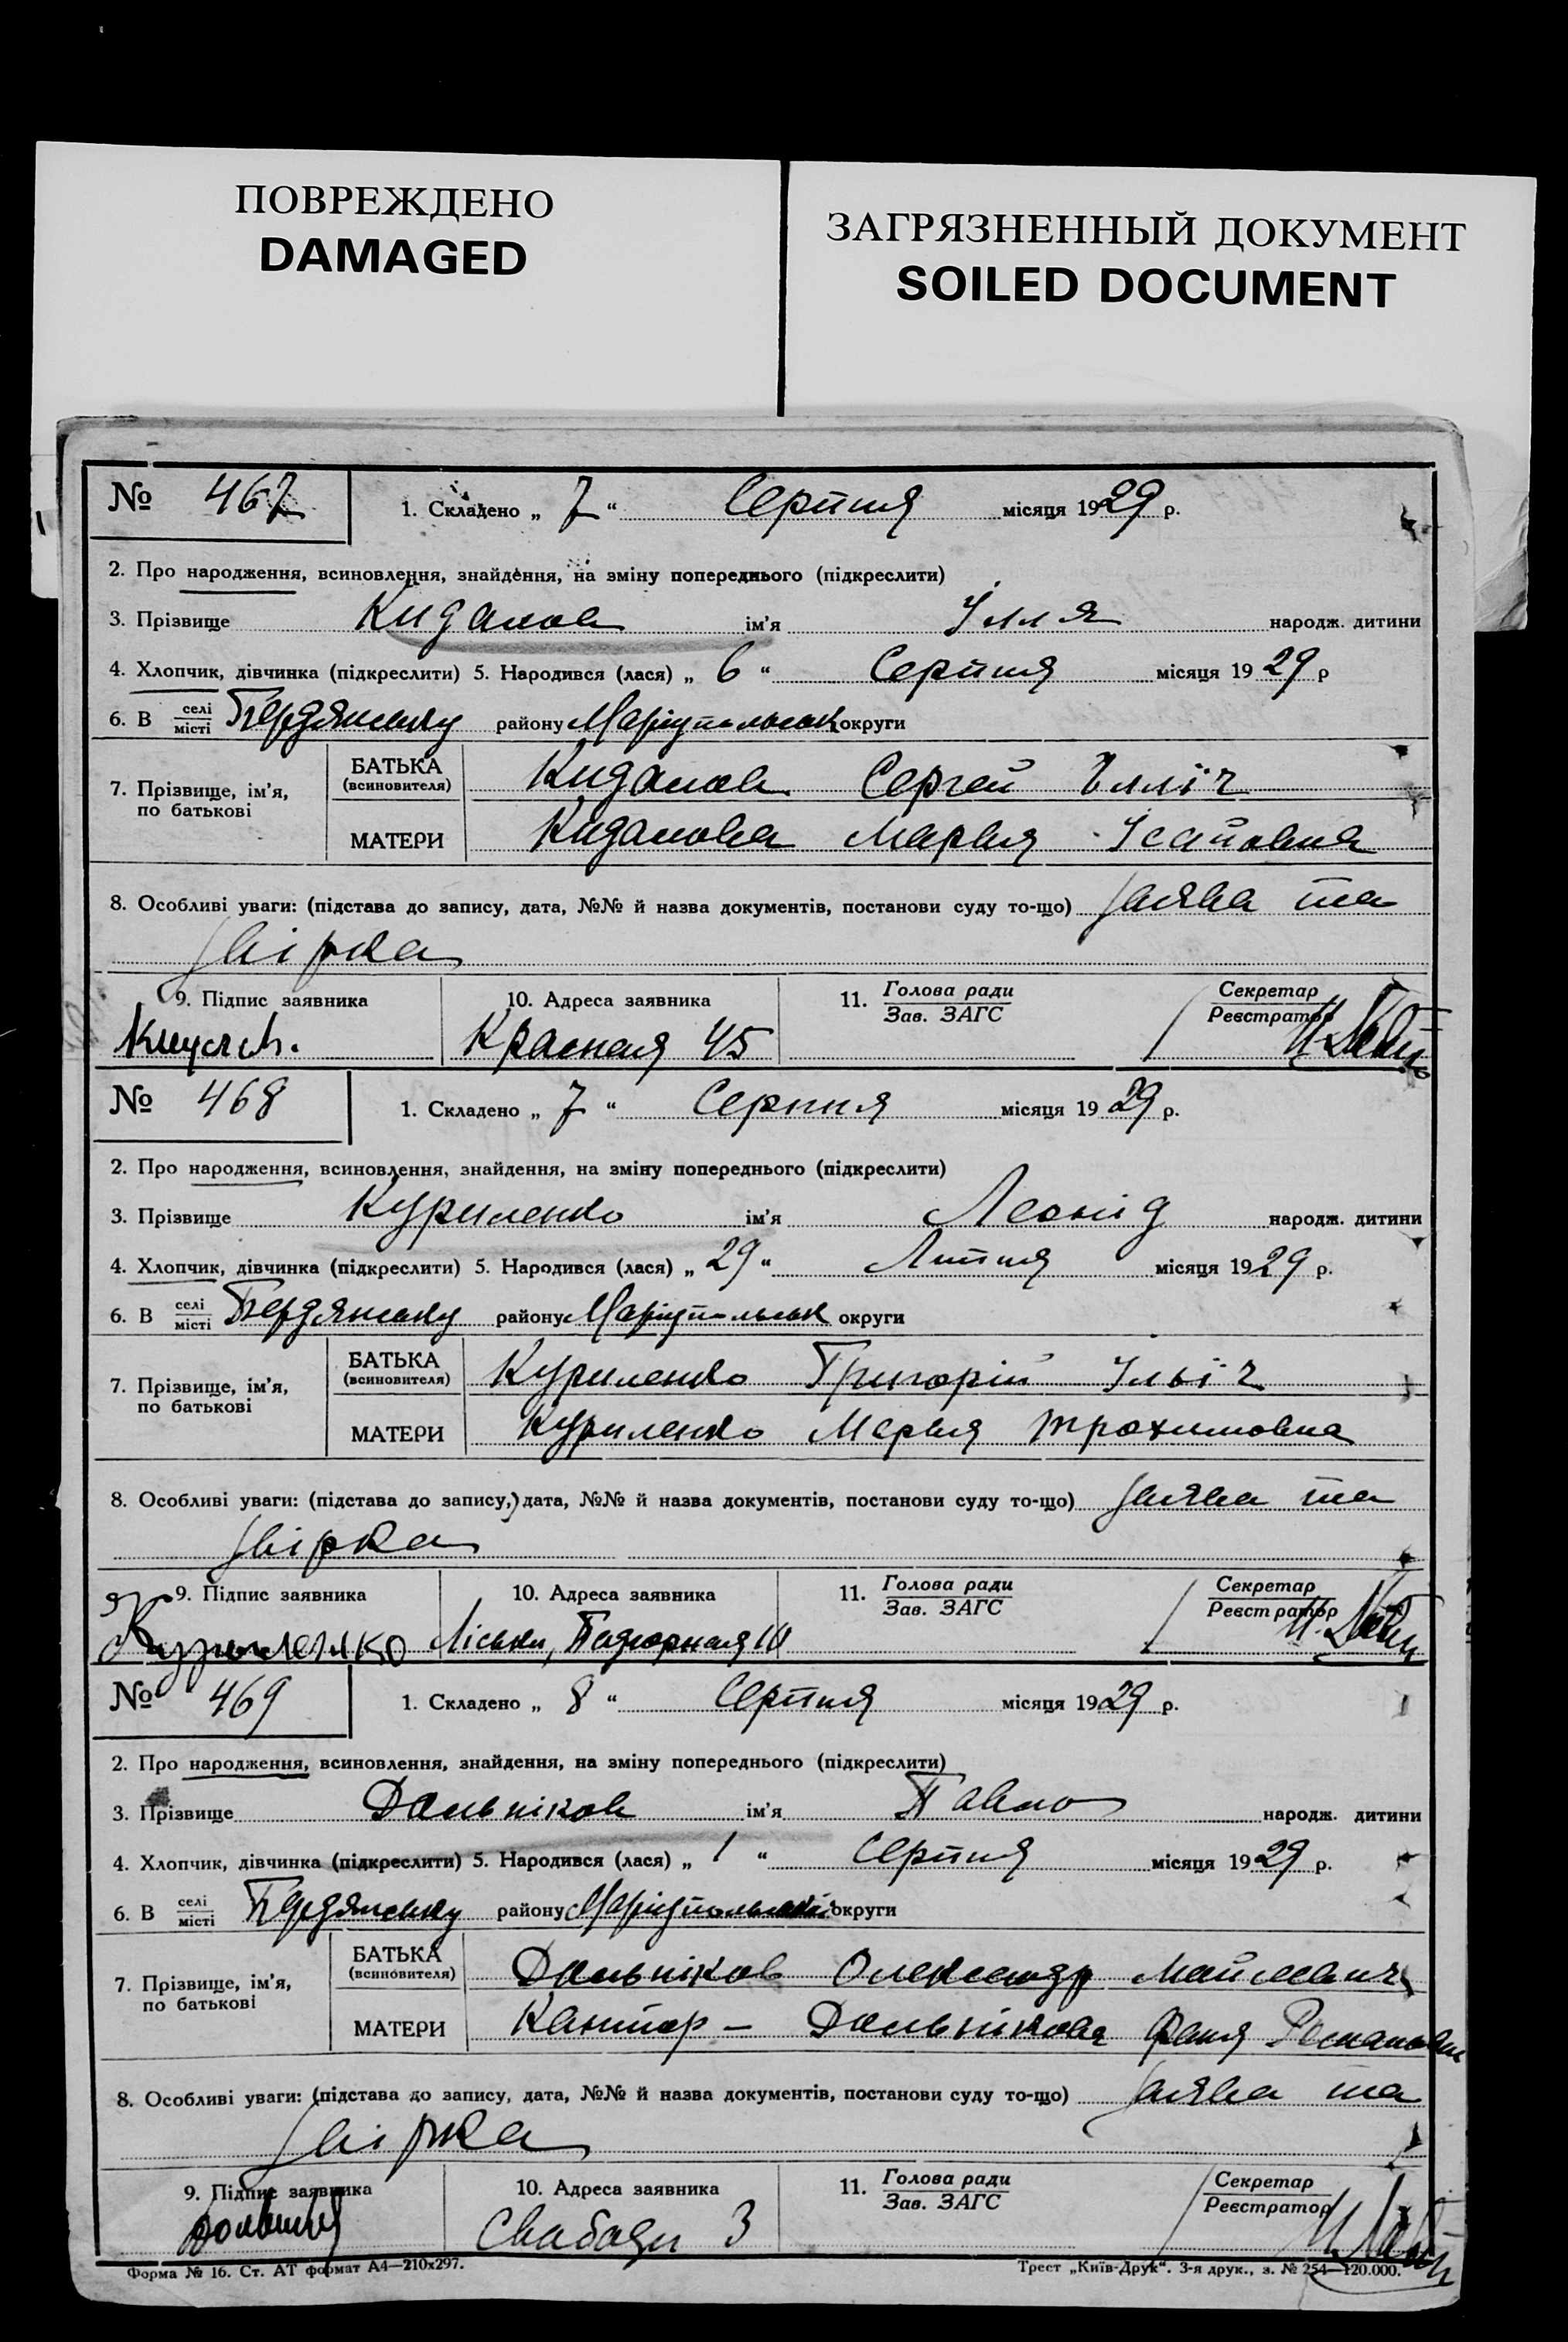 ПОВРЕЖДЕНО
DAMAGED
ЗАГРЯЗНЕННЫЙ ДОКУМЕНТ
SOILED DOCUMENT
№ 467 1. Складено „ 7 “ Серпня місяця 1929 р.
2. Про народження, всиновлення, знайдення, на зміну попереднього (підкреслити)
3. Прізвище Кидалов ім'я Ілля народж. дитини
4. Хлопчик, дівчинка (підкреслити) 5. Народився (лася) „ 6 “ Серпня місяця 1929 р
6. В селі місті Бердянську району Маріупольськ округи
7. Прізвище, ім'я, по батькові
БАТЬКА (всиновителя) Кидалов Сергей Ілліч
МАТЕРИ Кидалова Марья Ісаїовна
8. Особливі уваги: (підстава до запису, дата, №№ й назва документів, постанови суду то-що) Заява та
Звірка
9. Підпис заявника 10. Адреса заявника 11. Голова ради Зав. ЗАГС Секретар Реєстратор
Красная 45
№ 468 1. Складено „ 7 “ Серпня місяця 1929 р.
2. Про народження, всиновлення, знайдення, на зміну попереднього (підкреслити)
3. Прізвище Куриленко ім'я Леонід народж. дитини
4. Хлопчик, дівчинка (підкреслити) 5. Народився (лася) „ 29 “ Липня місяця 1929 р.
6. В селі місті Бердянську району Маріупольськ округи
7. Прізвище, ім'я, по батькові
БАТЬКА (всиновителя) Куриленко Григорій Ільіч
МАТЕРИ Куриленко Марья Трохимовна
8. Особливі уваги: (підстава до запису,) дата, №№ й назва документів, постанови суду то-що) Заява та
Звірка
9. Підпис заявника 10. Адреса заявника 11. Голова ради Зав. ЗАГС Секретар Реєстратор
Куриленко Ліски, Нагорная
№ 469 1. Складено „ 8 “ Серпня місяця 1929 р.
2. Про народження, всиновлення, знайдення, на зміну попереднього (підкреслити)
3. Прізвище Дальніков ім'я Павло народж. дитини
4. Хлопчик, дівчинка (підкреслити) 5. Народився (лася) „ 1 “ Серпня місяця 1929 р.
6. В селі місті Бердянську району Маріупольської округи
7. Прізвище, ім'я, по батькові
БАТЬКА (всиновителя) Дальніков Олександр
МАТЕРИ Кантор - Дальнікова Фаня Романовн
8. Особливі уваги: (підстава до запису, дата, №№ й назва документів, постанови суду то-що) Заява та
Звірка
9. Підпис заявника 10. Адреса заявника 11. Голова ради Зав. ЗАГС Секретар Реєстратор
Свабоди 3
Форма № 16. Ст. АТ формат А4—210х297. Трест „Київ-Друк“. 3-я друк., з. № 254—120.000.